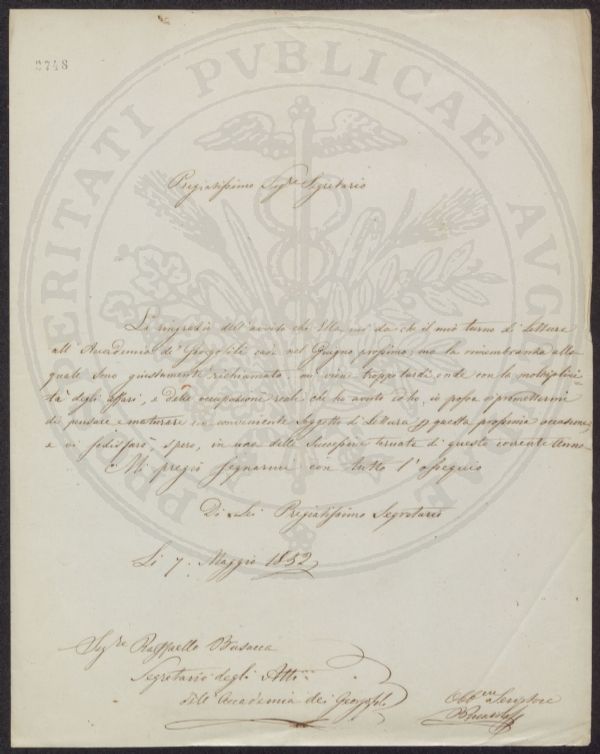 2748
PROSPERITATI PVBLICAE AVGENDAE
Pregiatissimo Sig.re Segretario
La ringrazio dell'avviso che Ella mi dà che il mio turno di Lettura
all'Accademia de' Georgofili cade nel Giugno prossimo; ma la rimembranza alla
quale sono giustamente richiamato, mi vien troppo tardi onde con la moltiplici-
tà degli affari, e delle occupazioni reali che ho avuto ed ho, io possa ripromettermi
di pensare e maturare un conveniente soggetto di Lettura p questa prossima occasione,
e vi sodisfarò, spero, in una delle susseguenti tornate di questo corrente anno.
Mi pregio segnarmi con tutto l'ossequio
Di Lei Pregiatissimo Segretario
Li 7. Maggio 1852
Sig.re Raffaello Busacca
Segretario degli Atti
dell'Accademia dei Georgofili
Obb.mo Servitore